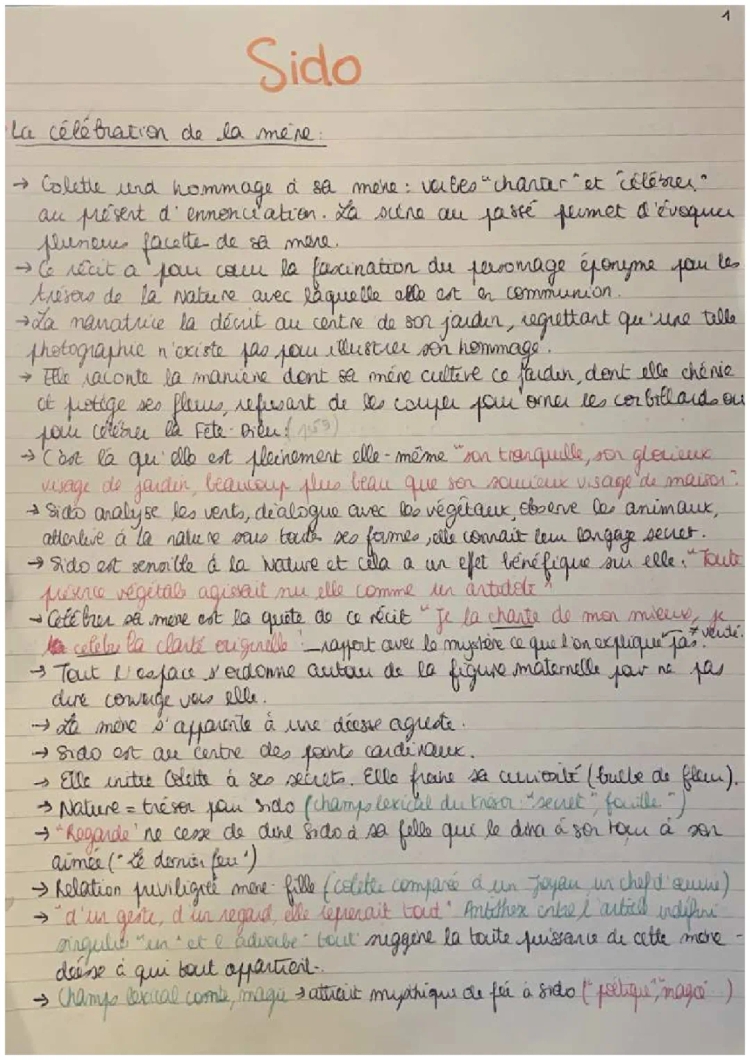 1
Sido
La célébration de la mère:
→ Colette rend hommage à sa mère : verbes "chanter" et "célébrer"
au présent d'ennonciation. La scène au passé permet d'évoquer
plusieurs facette de sa mère.
→ Ce récit a pour cœur la fascination du personnage éponyme pour les
trésors de la Nature avec laquelle elle est en communion.
→ La narratrice la décrit au centre de son jardin, regrettant qu'une telle
photographie n'existe pas pour illustrer son hommage.
→ Elle raconte la manière dont sa mère cultive ce jardin, dont elle chérie
et protège ses fleurs, refusant de les couper pour orner les corbillards ou
pour célébrer la Fête-Dieu
→ C'est là qu'elle est pleinement elle-même "son tranquille, son glorieux
visage de jardin, beaucoup plus beau que son soucieux visage de maison".
→ Sido analyse les vents, dialogue avec les végétaux, observe les animaux,
attentive à la nature sous toute ses formes, elle connait leur langage secret.
→ Sido est sensible à la Nature et cela a un effet bénéfique sur elle. "Toute
présence végétale agissait sur elle comme un antidote"
→ Célébrer sa mère est la quête de ce récit "Je la chante de mon mieux, je
célèbre la clarté originelle" → rapport avec le mystère ce que l'on explique pas.
→ Tout l'espace s'ordonne autour de la figure maternelle pour ne pas
dire converge vers elle.
→ La mère s'apparente à une déesse agreste.
→ Sido est au centre des points cardinaux.
→ Elle initie Colette à ses secrets. Elle freine sa curiosité (bulbe de fleur).
→ Nature = trésor pour Sido (champs lexical du trésor: "secret", fouille")
→ "Regarde" ne cesse de dire Sido à sa fille qui le dira à son tour à son
aimée ("Le dernier feu")
→ Relation priviligié mère-fille (colette comparé à un Joyau, un chef d'œuvre)
→ "d'un geste, d'un regard, elle reprenait tout" Antithèse entre l'article indéfini
singulier "un" et l'adverbe "tout" suggère la toute puissance de cette mère-
déesse à qui tout appartient.
→ Champs lexical conte, magie → attrait mythique de fée à Sido